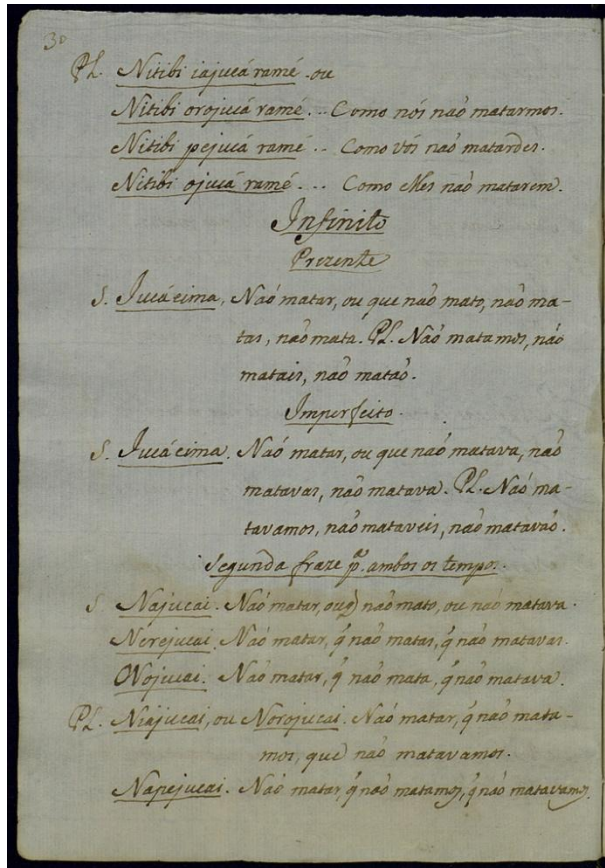 30
Pl. Nitibi iajucá ramé ou
Nitibi orojucá ramé... Como nós naõ matarmos.
Nitibi pejucá ramé... Como vós naõ matardes.
Nitibi ojucá ramé.... Como elles naõ matarem.
Infinito
Prezente
S. Jucá eima, Naõ matar, ou que naõ mato, naõ ma-
tas, naõ mata. Pl. Naõ matamos, naõ
matais, naõ mataõ.
Imperfeito.
S. Jucá eima. Naõ matar, ou que naõ matava, naõ
matavas, naõ matava. Pl. Naõ ma-
tavamos, naõ mataveis, naõ matavaõ.
Segunda fraze p.ª ambos os tempo.
S. Najucai. Naõ matar, ou q̃ naõ mato, ou naõ matava.
Nerejucai. Naõ matar, q̃ naõ matas, q̃ naõ matavas.
Nojucai. Naõ matar, q̃ naõ mata, q̃ naõ matava.
Pl. Niajucai, ou Norojucai. Naõ matar, q̃ naõ mata-
mos, que naõ matavamos.
Napejucai. Naõ matar, q̃ naõ matamos, q̃ naõ matavamos.